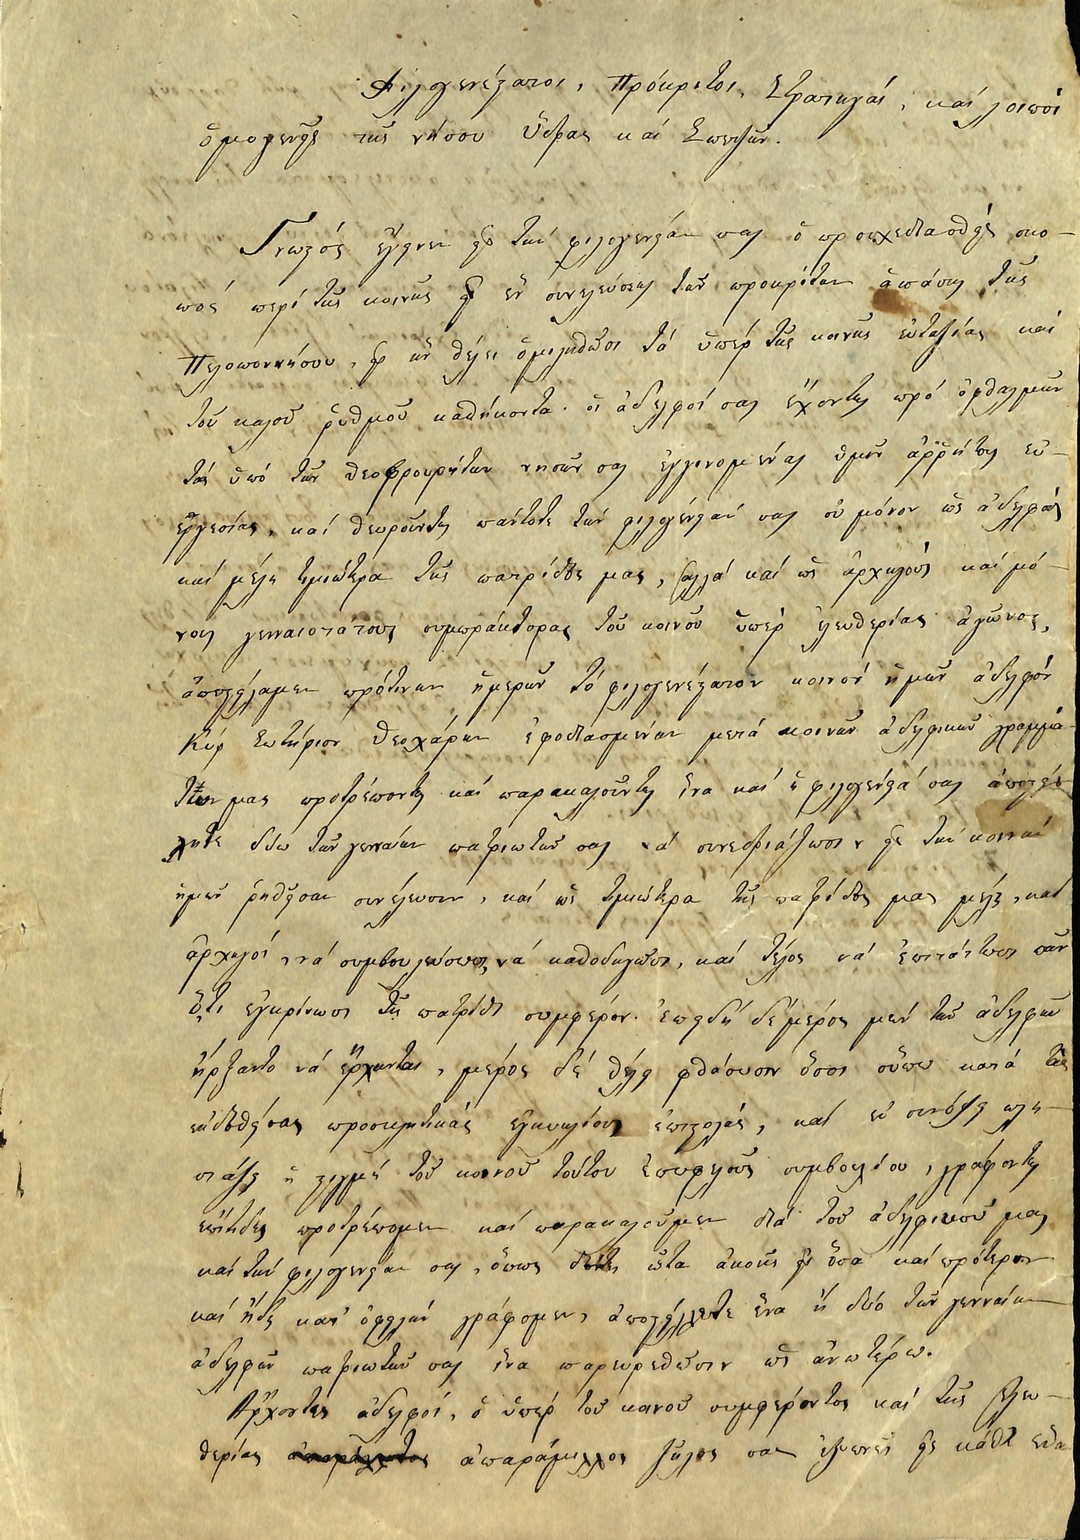 Φιλογενέστατοι, Πρόκριτοι, Στρατηγοί, καί λοιποί
ὁμογενεῖς τῆς νήσου Ὕδρας καί Σπετζῶν.
Γνωστός ἔγινεν εἰς τήν φιλογένειάν σας ὁ προσχεδιασθείς σκο-
πός περί τῆς κοινῆς συνελεύσεως τῶν προκρίτων ἁπάσης τῆς
Πελοποννήσου, εἰς ἥν θέλει ὁμιληθῶσι τά ὑπέρ τῆς κοινῆς εὐταξίας καί
τοῦ καλοῦ ῥυθμοῦ καθήκοντα. οἱ ἀδελφοί σας ἔχοντες πρό ὀφθαλμῶν
τάς ὑπό τῶν θεοφρουρήτων νήσων σας ἐγγινομένας ἡμῖν ἀῤῥήτους εὐ-
εργεσίας, καί θεωροῦντες πάντοτε τήν φιλογένειάν σας οὐ μόνον ὡς ἀδελφούς
καί μέλη τιμιώτερα τῆς πατρίδος μας, ἀλλά καί ὡς ἀρχηγούς καί μό-
νους γενναιοτάτους συμπράκτορας τοῦ κοινοῦ ὑπέρ ἐλευθερίας ἀγῶνος,
ἀπεστείλαμεν πρό τινων ἡμερῶν τό φιλογενέστατον κοινόν ἡμῶν ἀδελφόν
Κύρ Σωτήριον Θεοχάρην ἐφοδιασμένον μετά κοινῶν ἀδελφικῶν γραμμά
των μας προτρέποντες καί παρακαλοῦντες ἵνα καί ἡ φιλογένειά σας ἀποστεί
λητε δύω τῶν γενναίων πατριωτῶν σας νά συνεδριάζωσιν εἰς τήν κοινήν
ἡμῶν ῥηθεῖσαν συνέλευσιν, καί ὡς τιμιώτερα τῆς πατρίδος μας μέλη, καί
ἀρχηγοί, νά συμβουλεύσωσι, νά καθοδηγῶσι, καί τέλος νά ἐπιτάττωσι πᾶν
ὅ,τι ἐγκρίνωσι τῇ πατρίδι συμφέρον. ἐπειδή δέ μέρος μέν τῶν ἀδελφῶν
ἤρξαντο νά ἔρχωνται, μέρος δέ θέλει φθάσωσιν ὅσοι οὔπω κατά τάς
ἐκδοθείσας προσκλητικάς ἐγκυκλίους ἐπιστολάς, καί ἐν συνόψει πλη-
σιάζει ἡ στιγμή τοῦ κοινοῦ τούτου ἐπωφελοῦς συμβουλίου, γράφοντες
ἐπίτηδες προτρέπομεν καί παρακαλοῦμεν διά τοῦ ἀδελφικοῦ μας
καί τήν φιλογένειάν σας, ὅπως δόσητε ὦτα ἀκοῆς εἰς ὅσα καί πρότερον
καί ἤδη κατ' ὀφειλήν γράφομεν, ἀποστείλλετε ἕνα ἤ δύο τῶν γενναίων
ἀδελφῶν πατριωτῶν σας ἵνα παρευρεθῶσιν ὡς ἀνωτέρω.
Ἄρχοντες ἀδελφοί, ὁ ὑπέρ τοῦ κοινοῦ συμφέροντος καί τῆς ἐλευ-
θερίας ἀπαράμιλλος ζῆλος σας ἐξυπνεῖ εἰς κάθε ἕνα